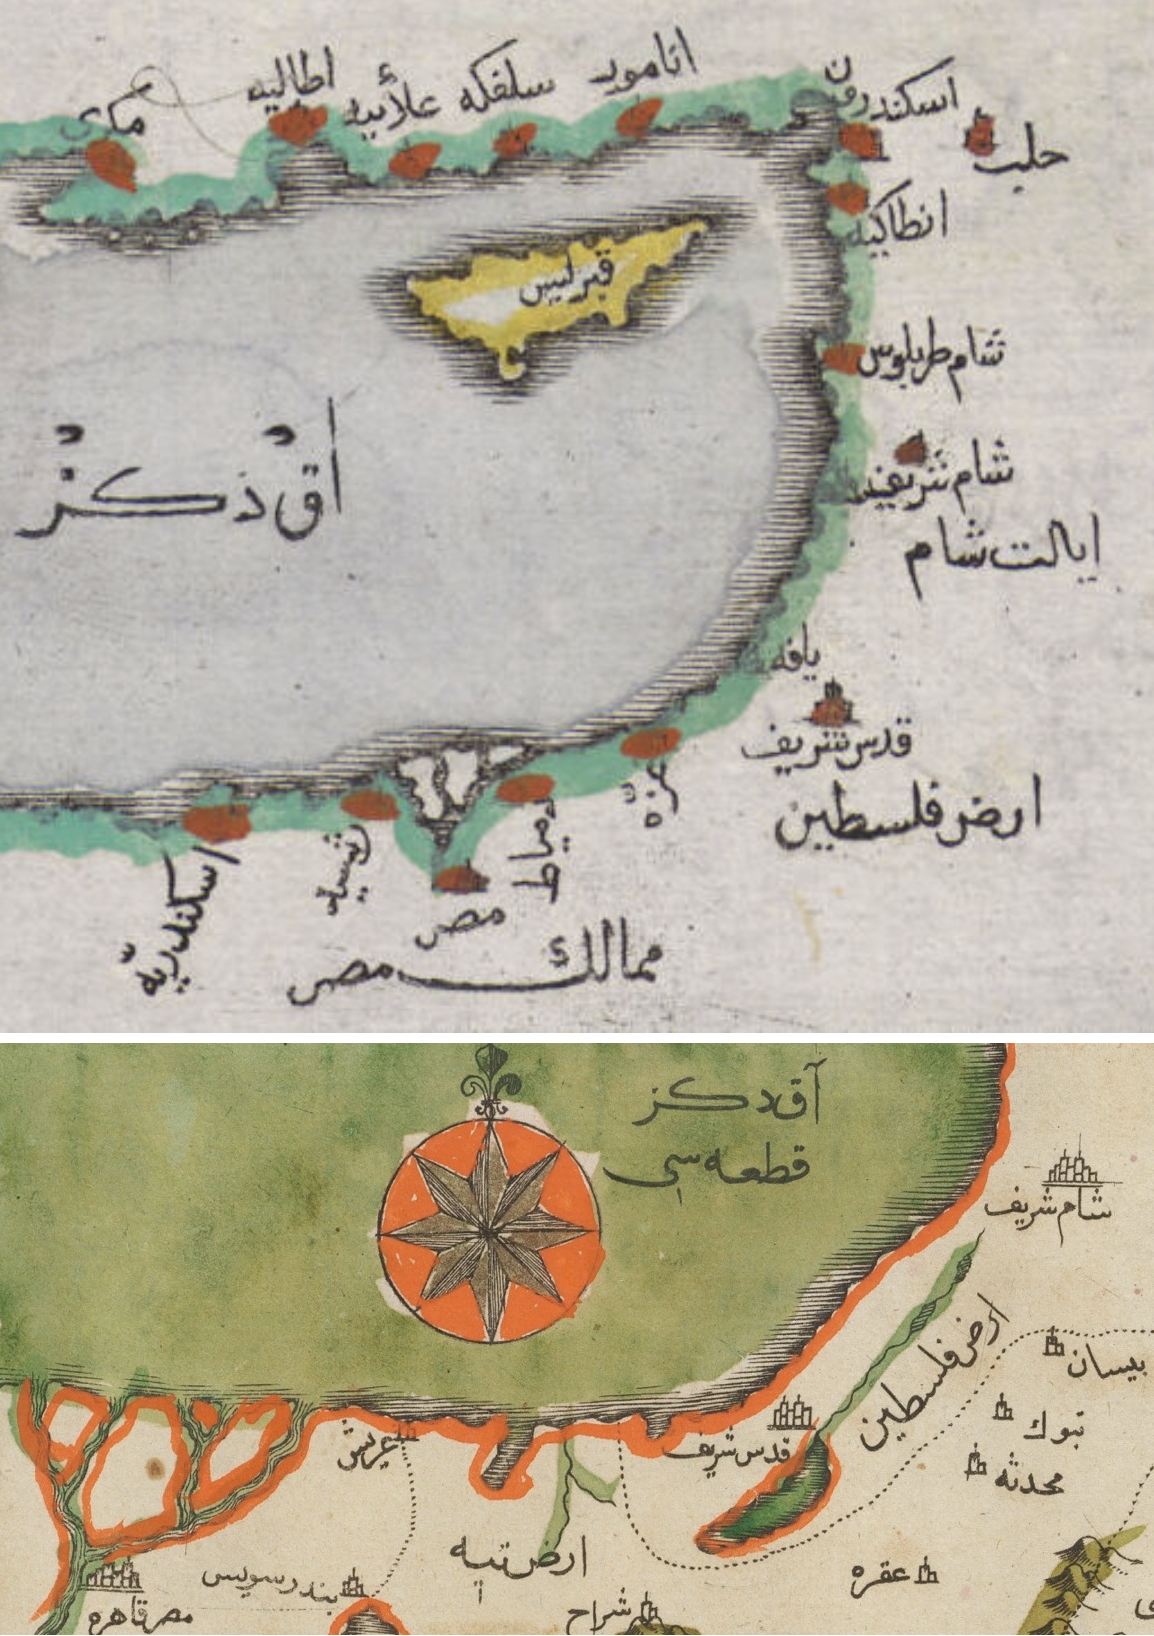 مكرى
اطاليه
علائيه
سلفكه
انامور
اسكندرون
حلب
انطاكيه
قبرليس
شام طربلوس
شام شريف
ايالت شام
آق دكز
يافه
قدس شريف
ارض فلسطين
غزه
دمياط
رشيد
اسكندريّه
مصر
ممالك مصر
آق دكز
قطعه سى
شام شريف
ارض فلسطين
بيسان
تبوك
محدثه
قدس شريف
عريش
ارض تيه
عقره
بندر سويس
شراح
مصر قاهره